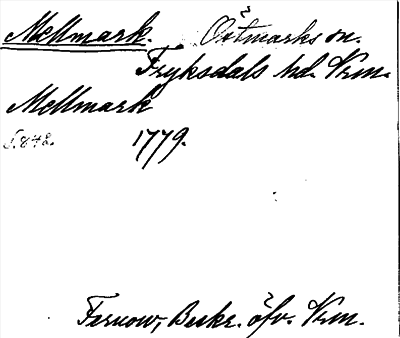 Mellmark. Östmarks sn.
Fryksdals hd. Vrm.
Mellmark
S. 848. 1779.
Fernow, Beskr. öfv. Vrm.